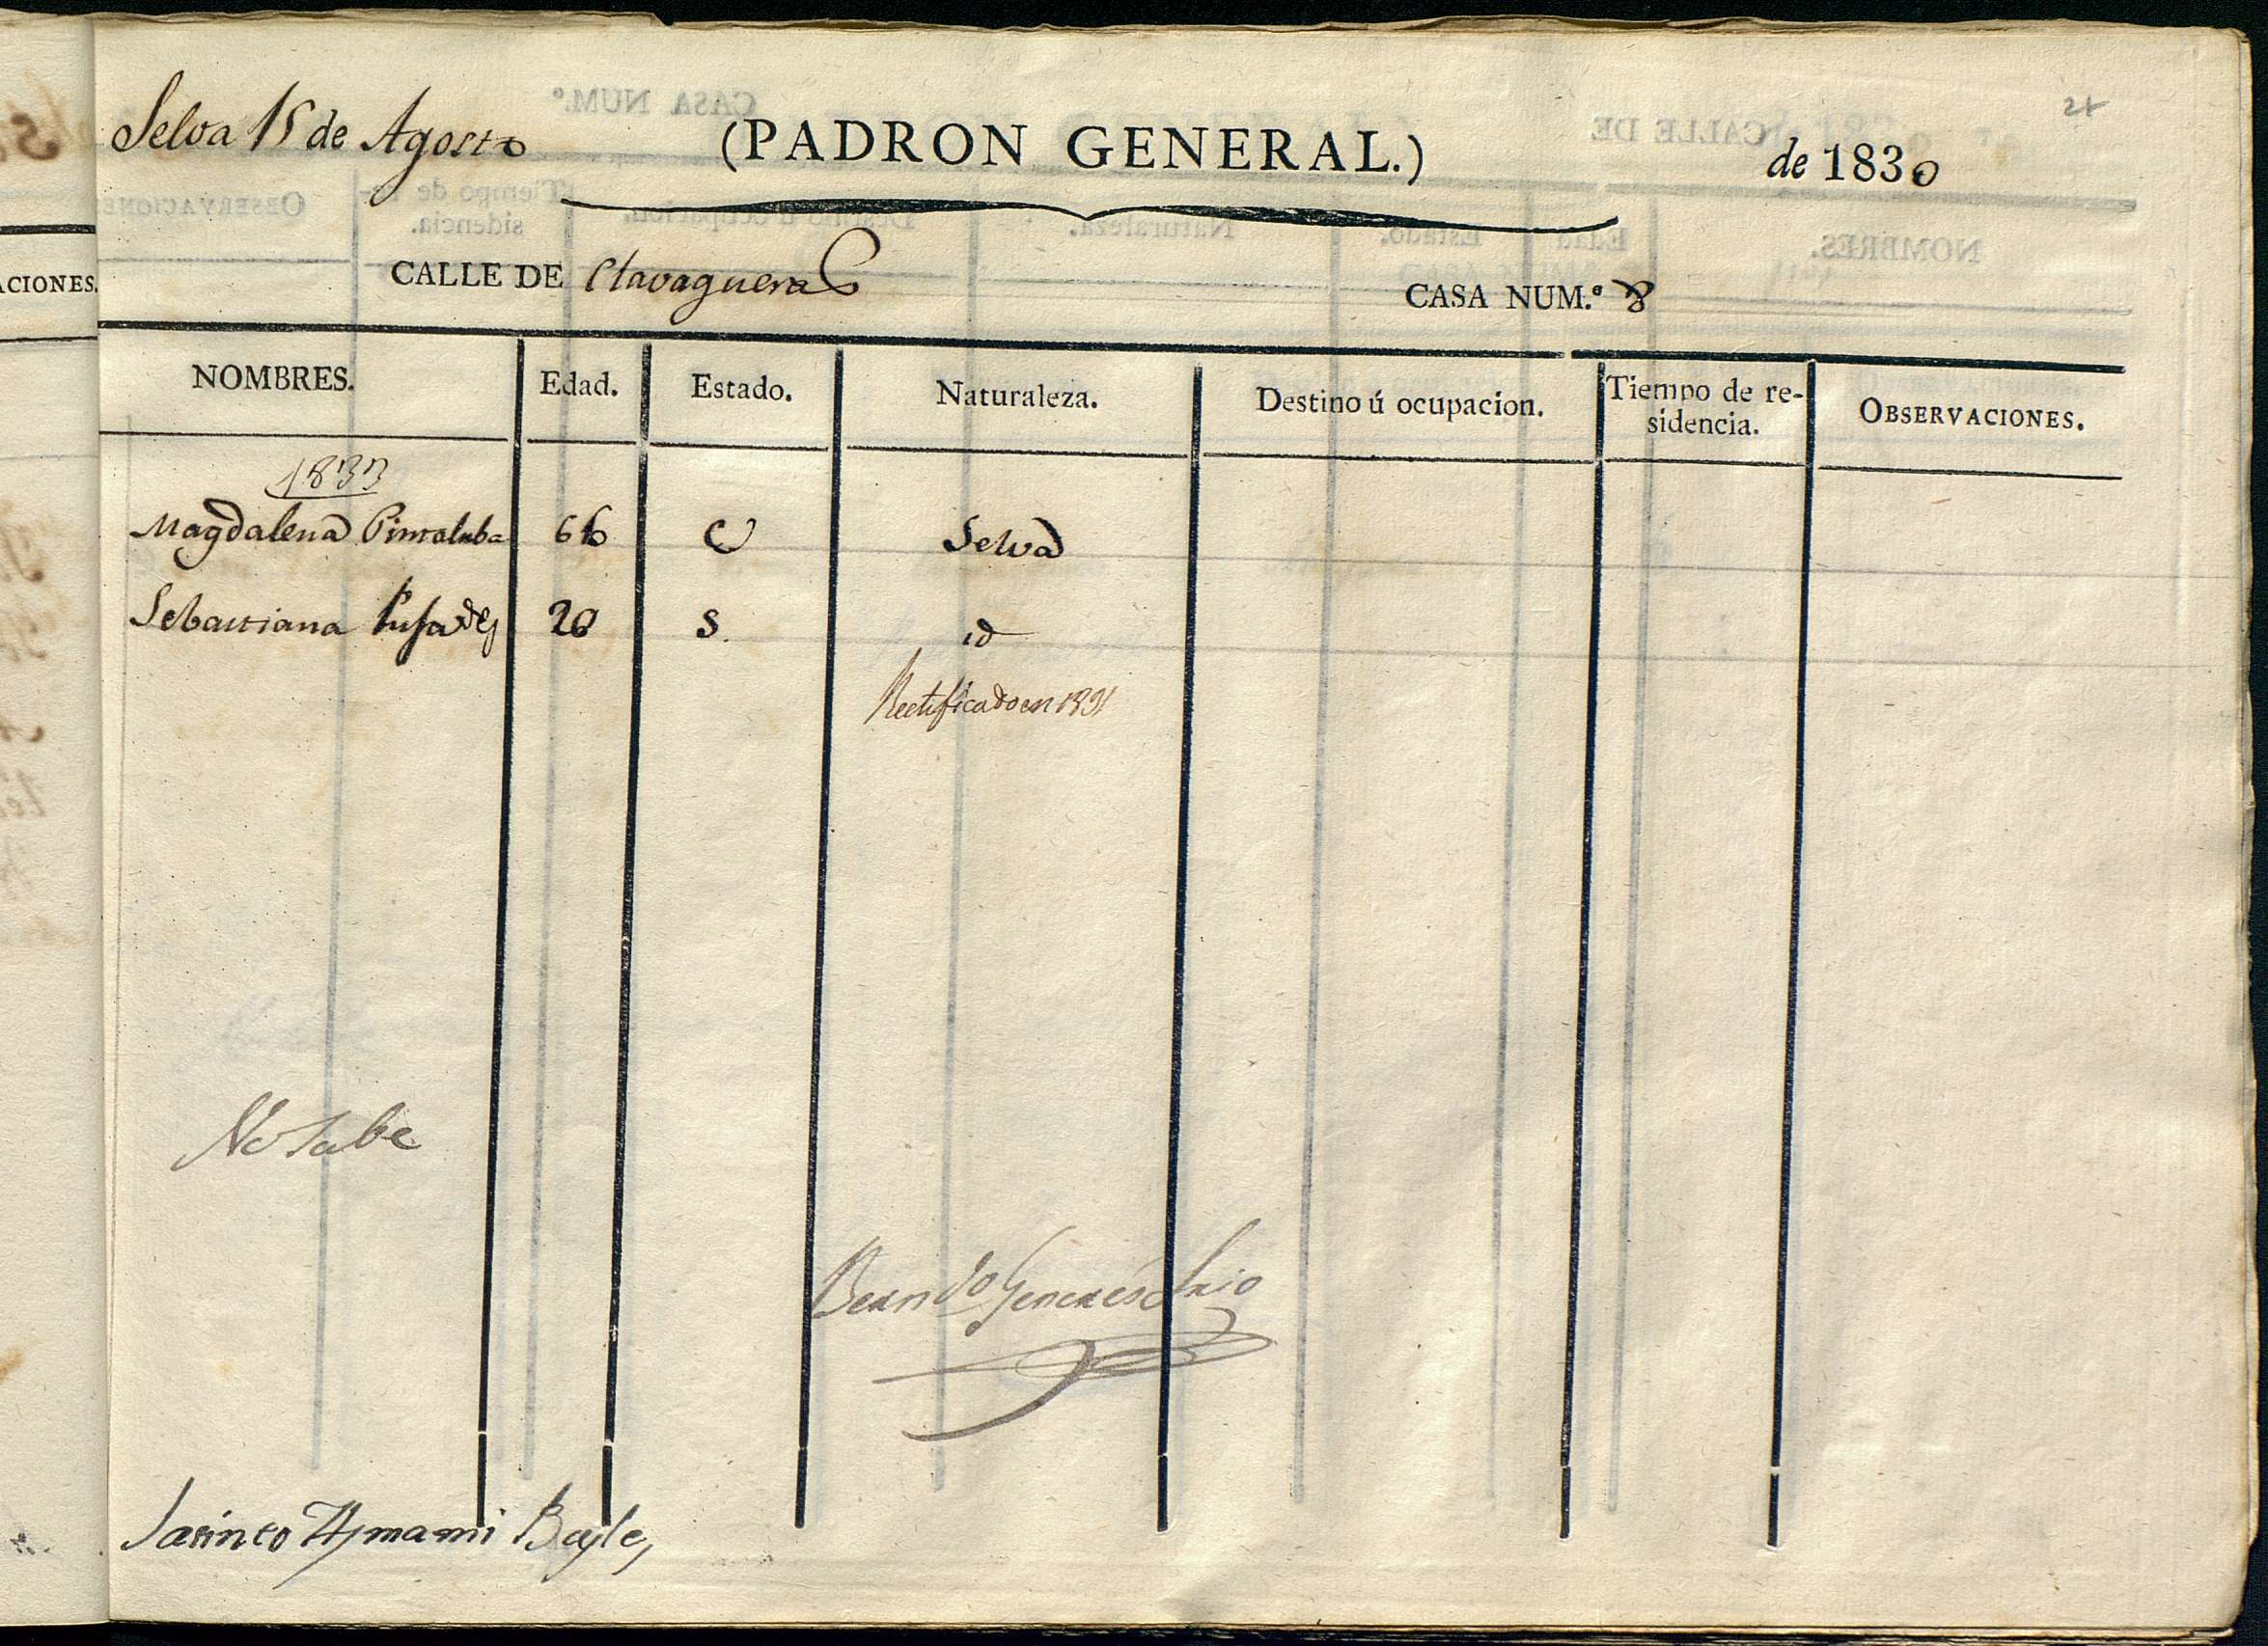 Selva 15 de Agosto (PADRON GENERAL.) de 1830
CALLE DE Clavaguera CASA NUM.º 8
ACIONES.
NOMBRES. Edad. Estado. Naturaleza. Destino ú ocupacion. Tiempo de re-
sidencia. OBSERVACIONES.
1833
Magdalena 66 Selva
Sebastiana Pusades 20 S. id
Rectificado en 1831
No Sabe
Jacinto Bayle